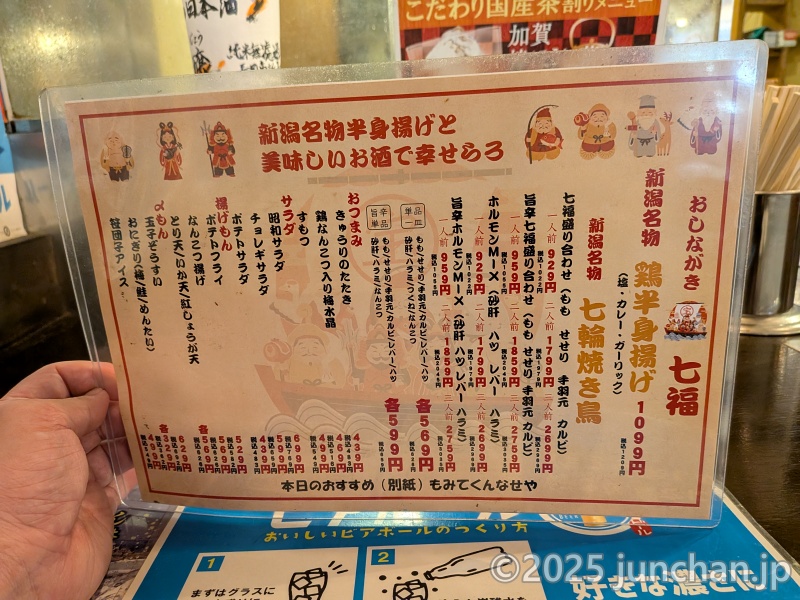 こだわり国産茶割りメニュー
加賀
新潟名物半身揚げと
美味しいお酒で幸せらろ
おしながき 七福
新潟名物 鶏半身揚げ 1099円
(塩・カレー・ガーリック)
新潟名物 七輪焼き鳥
七福盛り合わせ(もも せせり 手羽元 カルビ)
一人前 929円 二人前 1799円 三人前 2699円
旨辛七福盛り合わせ(もも せせり 手羽元 カルビ)
一人前 959円 二人前 1859円 三人前 2759円
ホルモンMIX(砂肝 ハツ レバー ハラミ)
一人前 929円 二人前 1799円 三人前 2699円
旨辛ホルモンMIX(砂肝 ハツ レバー ハラミ)
一人前 959円 二人前 1859円 三人前 2759円
単品一皿
もも/せせり/手羽元/カルビ/レバー/ハツ
砂肝/ハラミ/つくね/なんこつ
各569円
旨辛単品
もも/せせり/手羽元/カルビ/レバー/ハツ
砂肝/ハラミ/なんこつ
各599円
おつまみ
きゅうりのたたき 439円
鶏なんこつ入り梅水晶 469円
すもつ 499円
サラダ
昭和サラダ 699円
チョレギサラダ
ポテトサラダ 439円
揚げもん
ポテトフライ 529円
なんこつ揚げ 569円
とり天/いか天/紅しょうが天 各569円
〆もん
玉子ぞうすい 629円
おにぎり(梅/鮭/めんたい)
笹団子アイス
本日のおすすめ(別紙)もみてくんなせや
おいしいビアボールのつくり方
1
まずはグラスに
2
好きな濃さに
©2025 junchan.jp